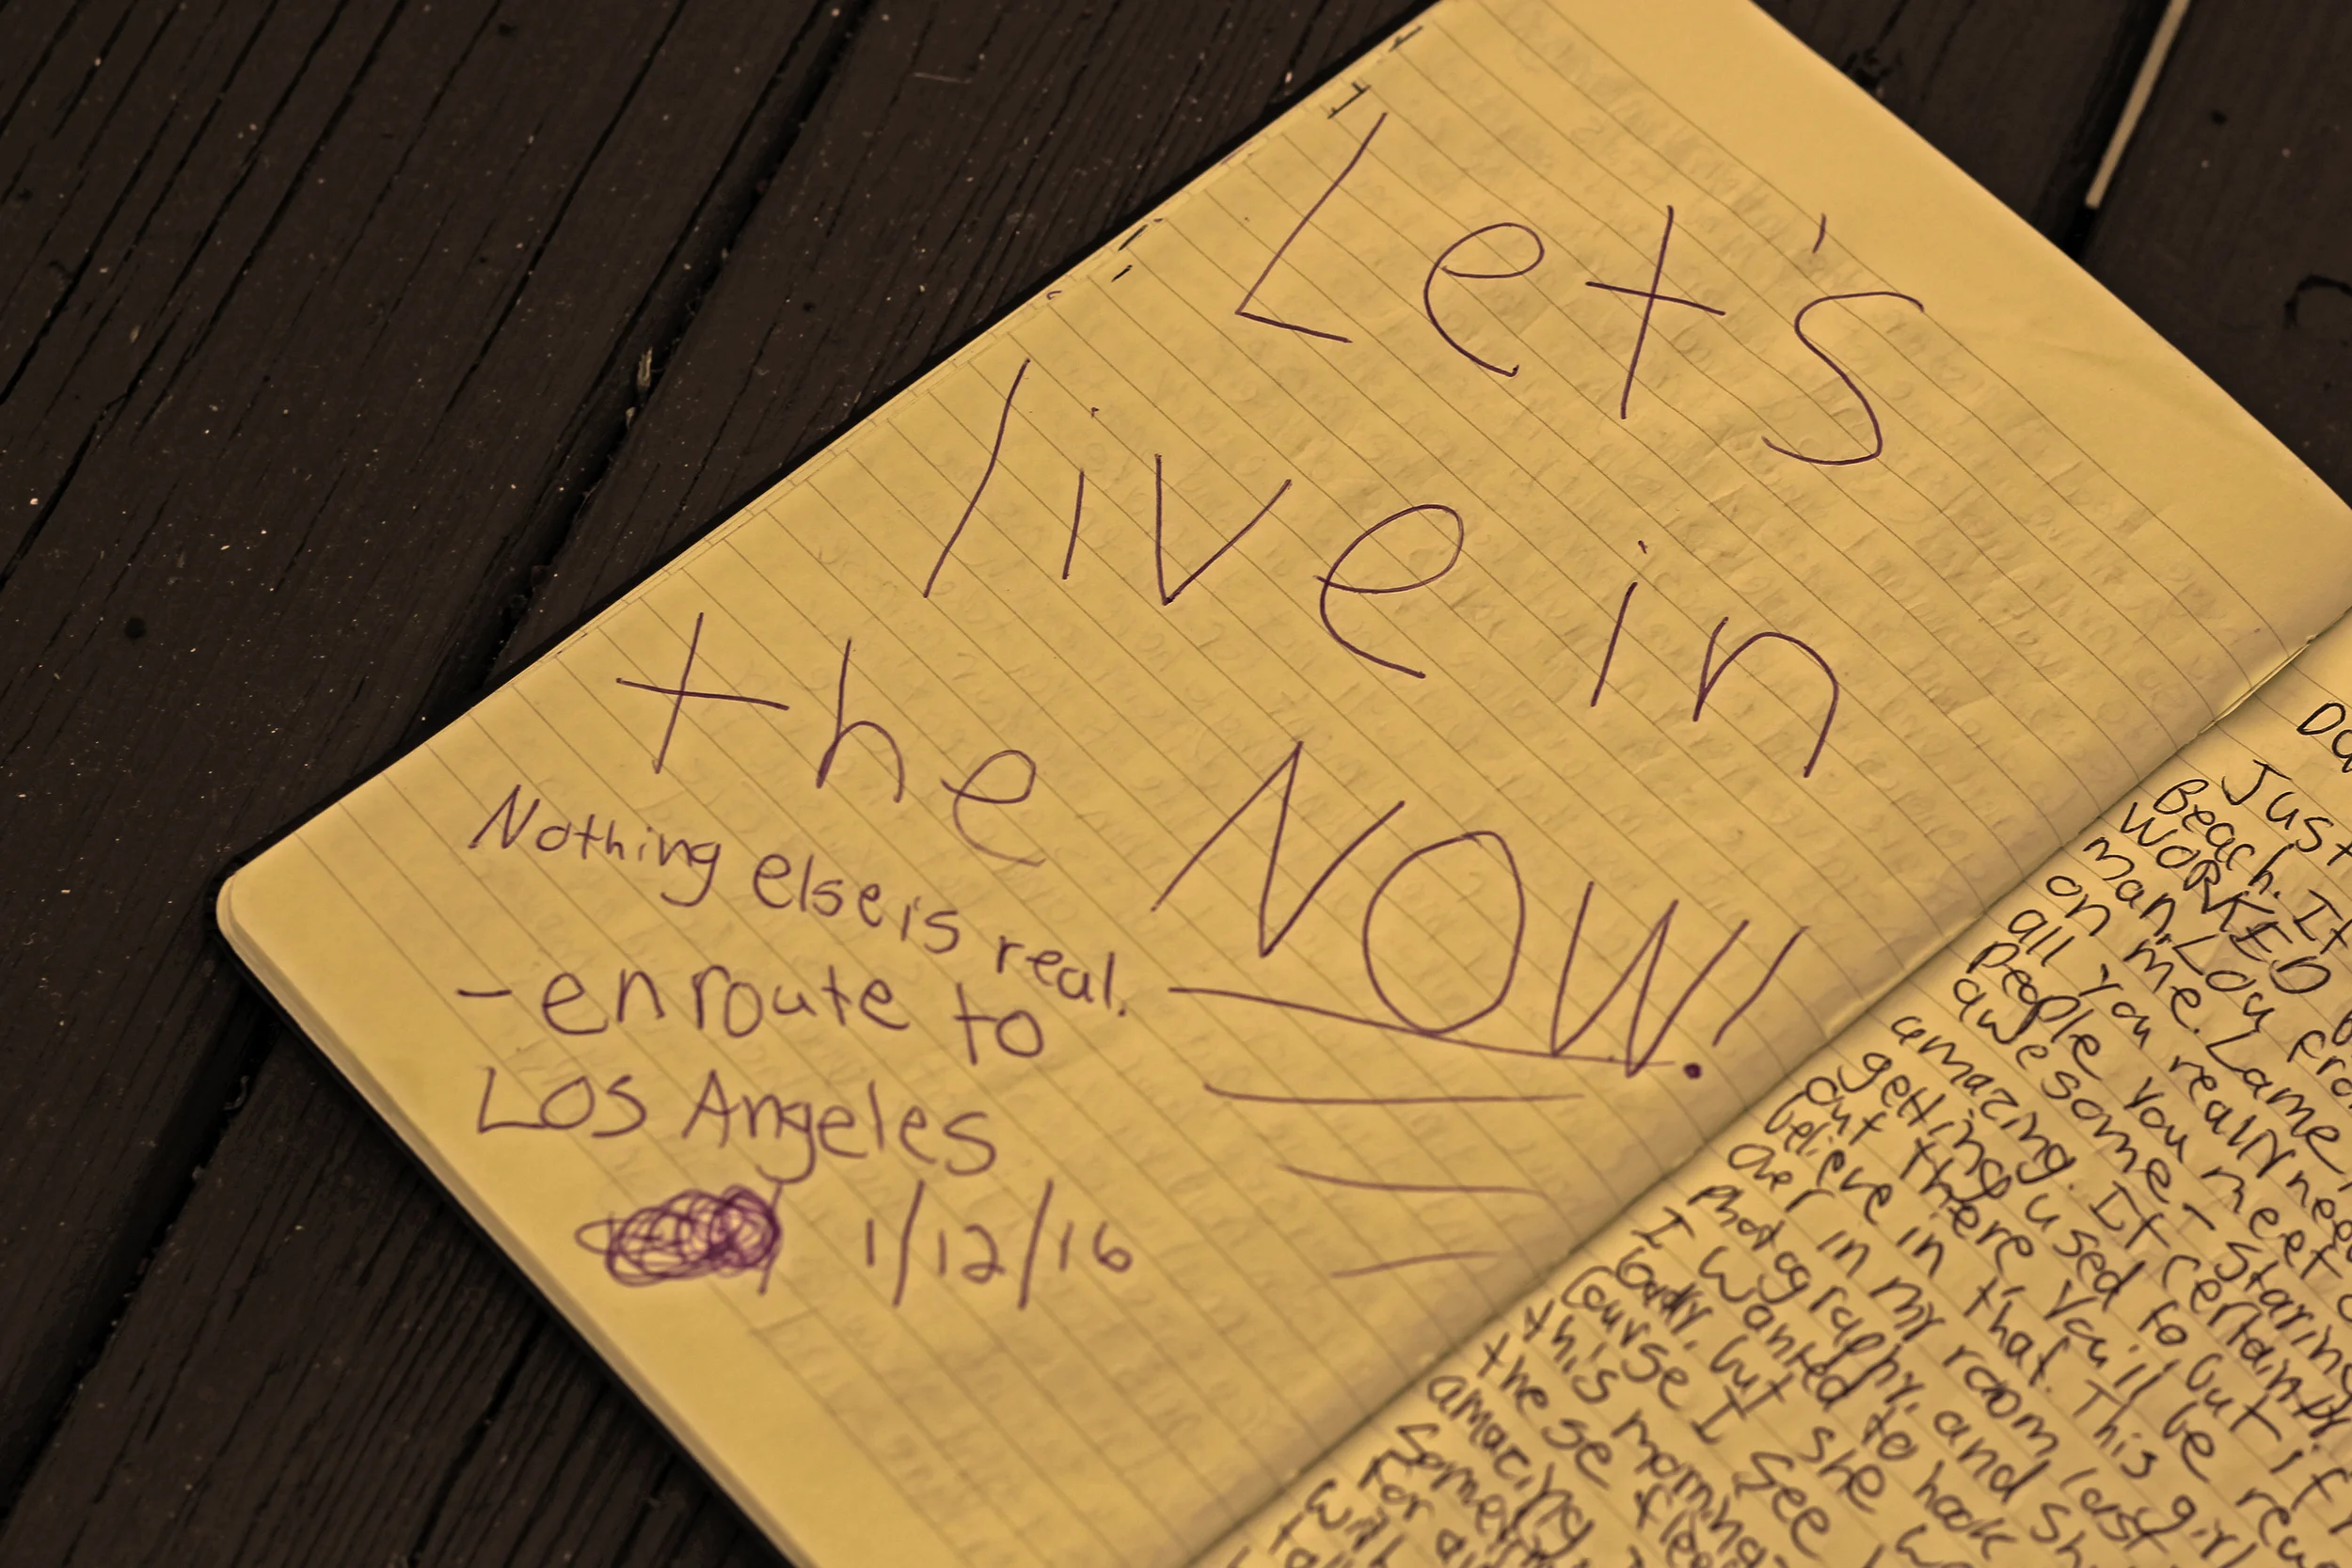 Let's
live in
the NOW!
Nothing else is real.
- en route to
Los Angeles
1/12/16
Just
Beach. It
WORKED
man. Lou fro
on me. Lame
all you really nee
people you meet
awesome - staring
amazing. It certainly
getting used to but if
out there you'll be
believe in that. This girl
over in my room last
photography, and sh
I wanted to hook
badly, but she
course I see
this morning
these
amazing
for
will